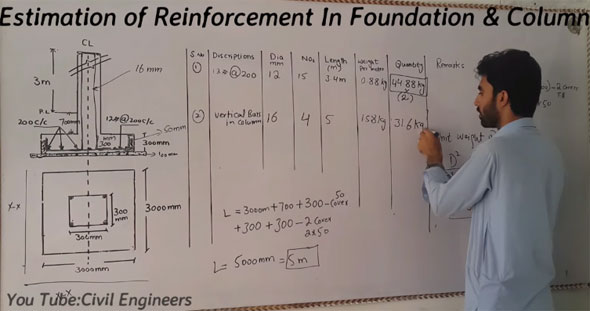 Estimation of Reinforcement In Foundation & Column
CL
3m
16mm
200C/C
700mm
12#@200C/C
300
50mm
300mm
100mm
X-X
300
mm
300mm
3000mm
3000mm
S.No Discriptions Dia mm Nos Length (m) weight Per meter Quantity Remarks
① 12#@200 12 15 3.4m 0.88kg 44.88kg
(2)
② Vertical Bars in column 16 4 5 1.58kg 31.6kg
L = 3000m+700+300-cover 50
+300+300-2 Cover
2x50
L = 5000mm = 5m
D²
You Tube:Civil Engineers